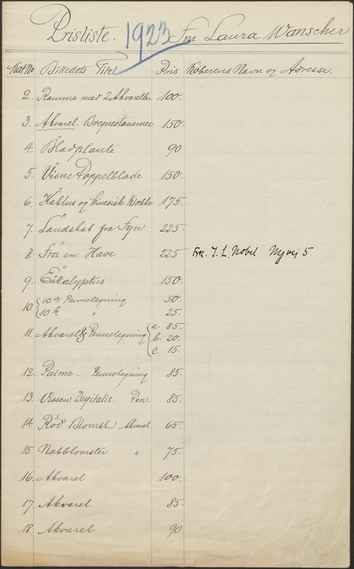 Prisliste. 1923 Fru Laura Wanscher
Kat Nr. Billedets Titel Pris Køberens Navn og Adresse.
2. Ramme med 2 Akvareller 100.
3. Akvarel. 150.
4. Bladplante 90
5. Visne Pappelblade 150.
6. Kaktus og kinesisk 175.
7. Landskab fra Fyn 225.
8. Fra en Have 225 Frk. T. L. Nobel Nyvej 5
9. Eukalyptus 150.
10 { 10 a Pennetegning 50.
10 b " 25.
11. Akvarel & Pennetegning { a. 85.
b. 20.
c. 15.
12. Palme. Pennetegning 85.
13. Vissen Digitalis Pen 85.
14. Rød Blomst. Akvarel 65.
15. Natblomster " 75.
16. Akvarel 100.
17. Akvarel 85.
18. Akvarel 90